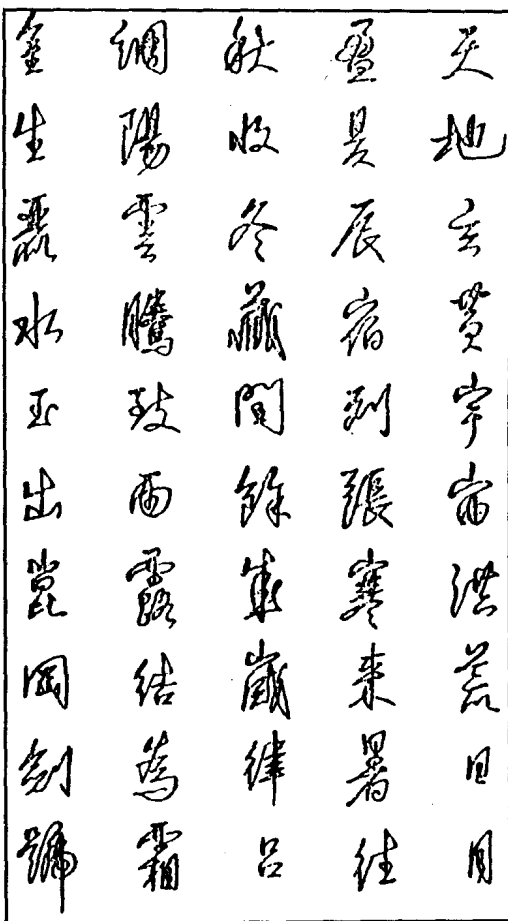 天地玄黄宇宙洪荒日月
盈昃辰宿列張寒来暑往
秋收冬藏閏餘成歲律呂
調陽雲騰致雨露結為霜
金生麗水玉出崑岡劍號